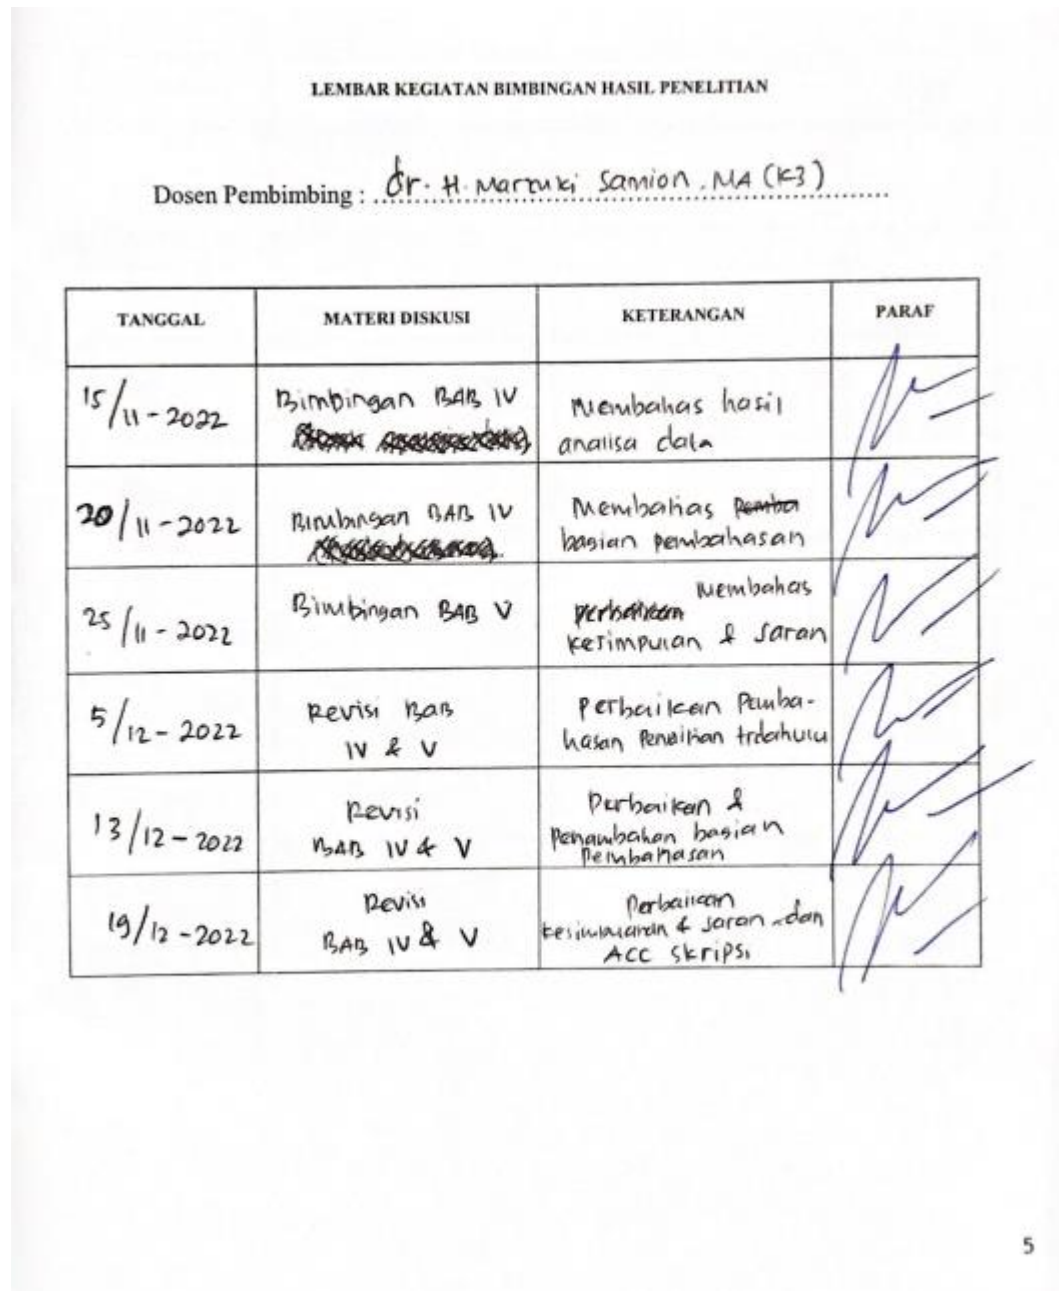 LEMBAR KEGIATAN BIMBINGAN HASIL PENELITIAN
Dosen Pembimbing : dr. H. Marzuki Samion, MA (K3)
TANGGAL MATERI DISKUSI KETERANGAN PARAF
15/11-2022 Bimbingan BAB IV Membahas hasil
analisa data
20/11-2022 Bimbingan BAB IV Membahas
bagian pembahasan
25/11-2022 Bimbingan BAB V Membahas
kesimpulan & saran
5/12-2022 Revisi BAB Perbaikan Pemba-
IV & V hasan Penelitian trdahulu
13/12-2022 Revisi Perbaikan &
BAB IV & V Penambahan bagian
Pembahasan
19/12-2022 Revisi Perbaikan
BAB IV & V kesimpulan & saran dan
ACC Skripsi
5